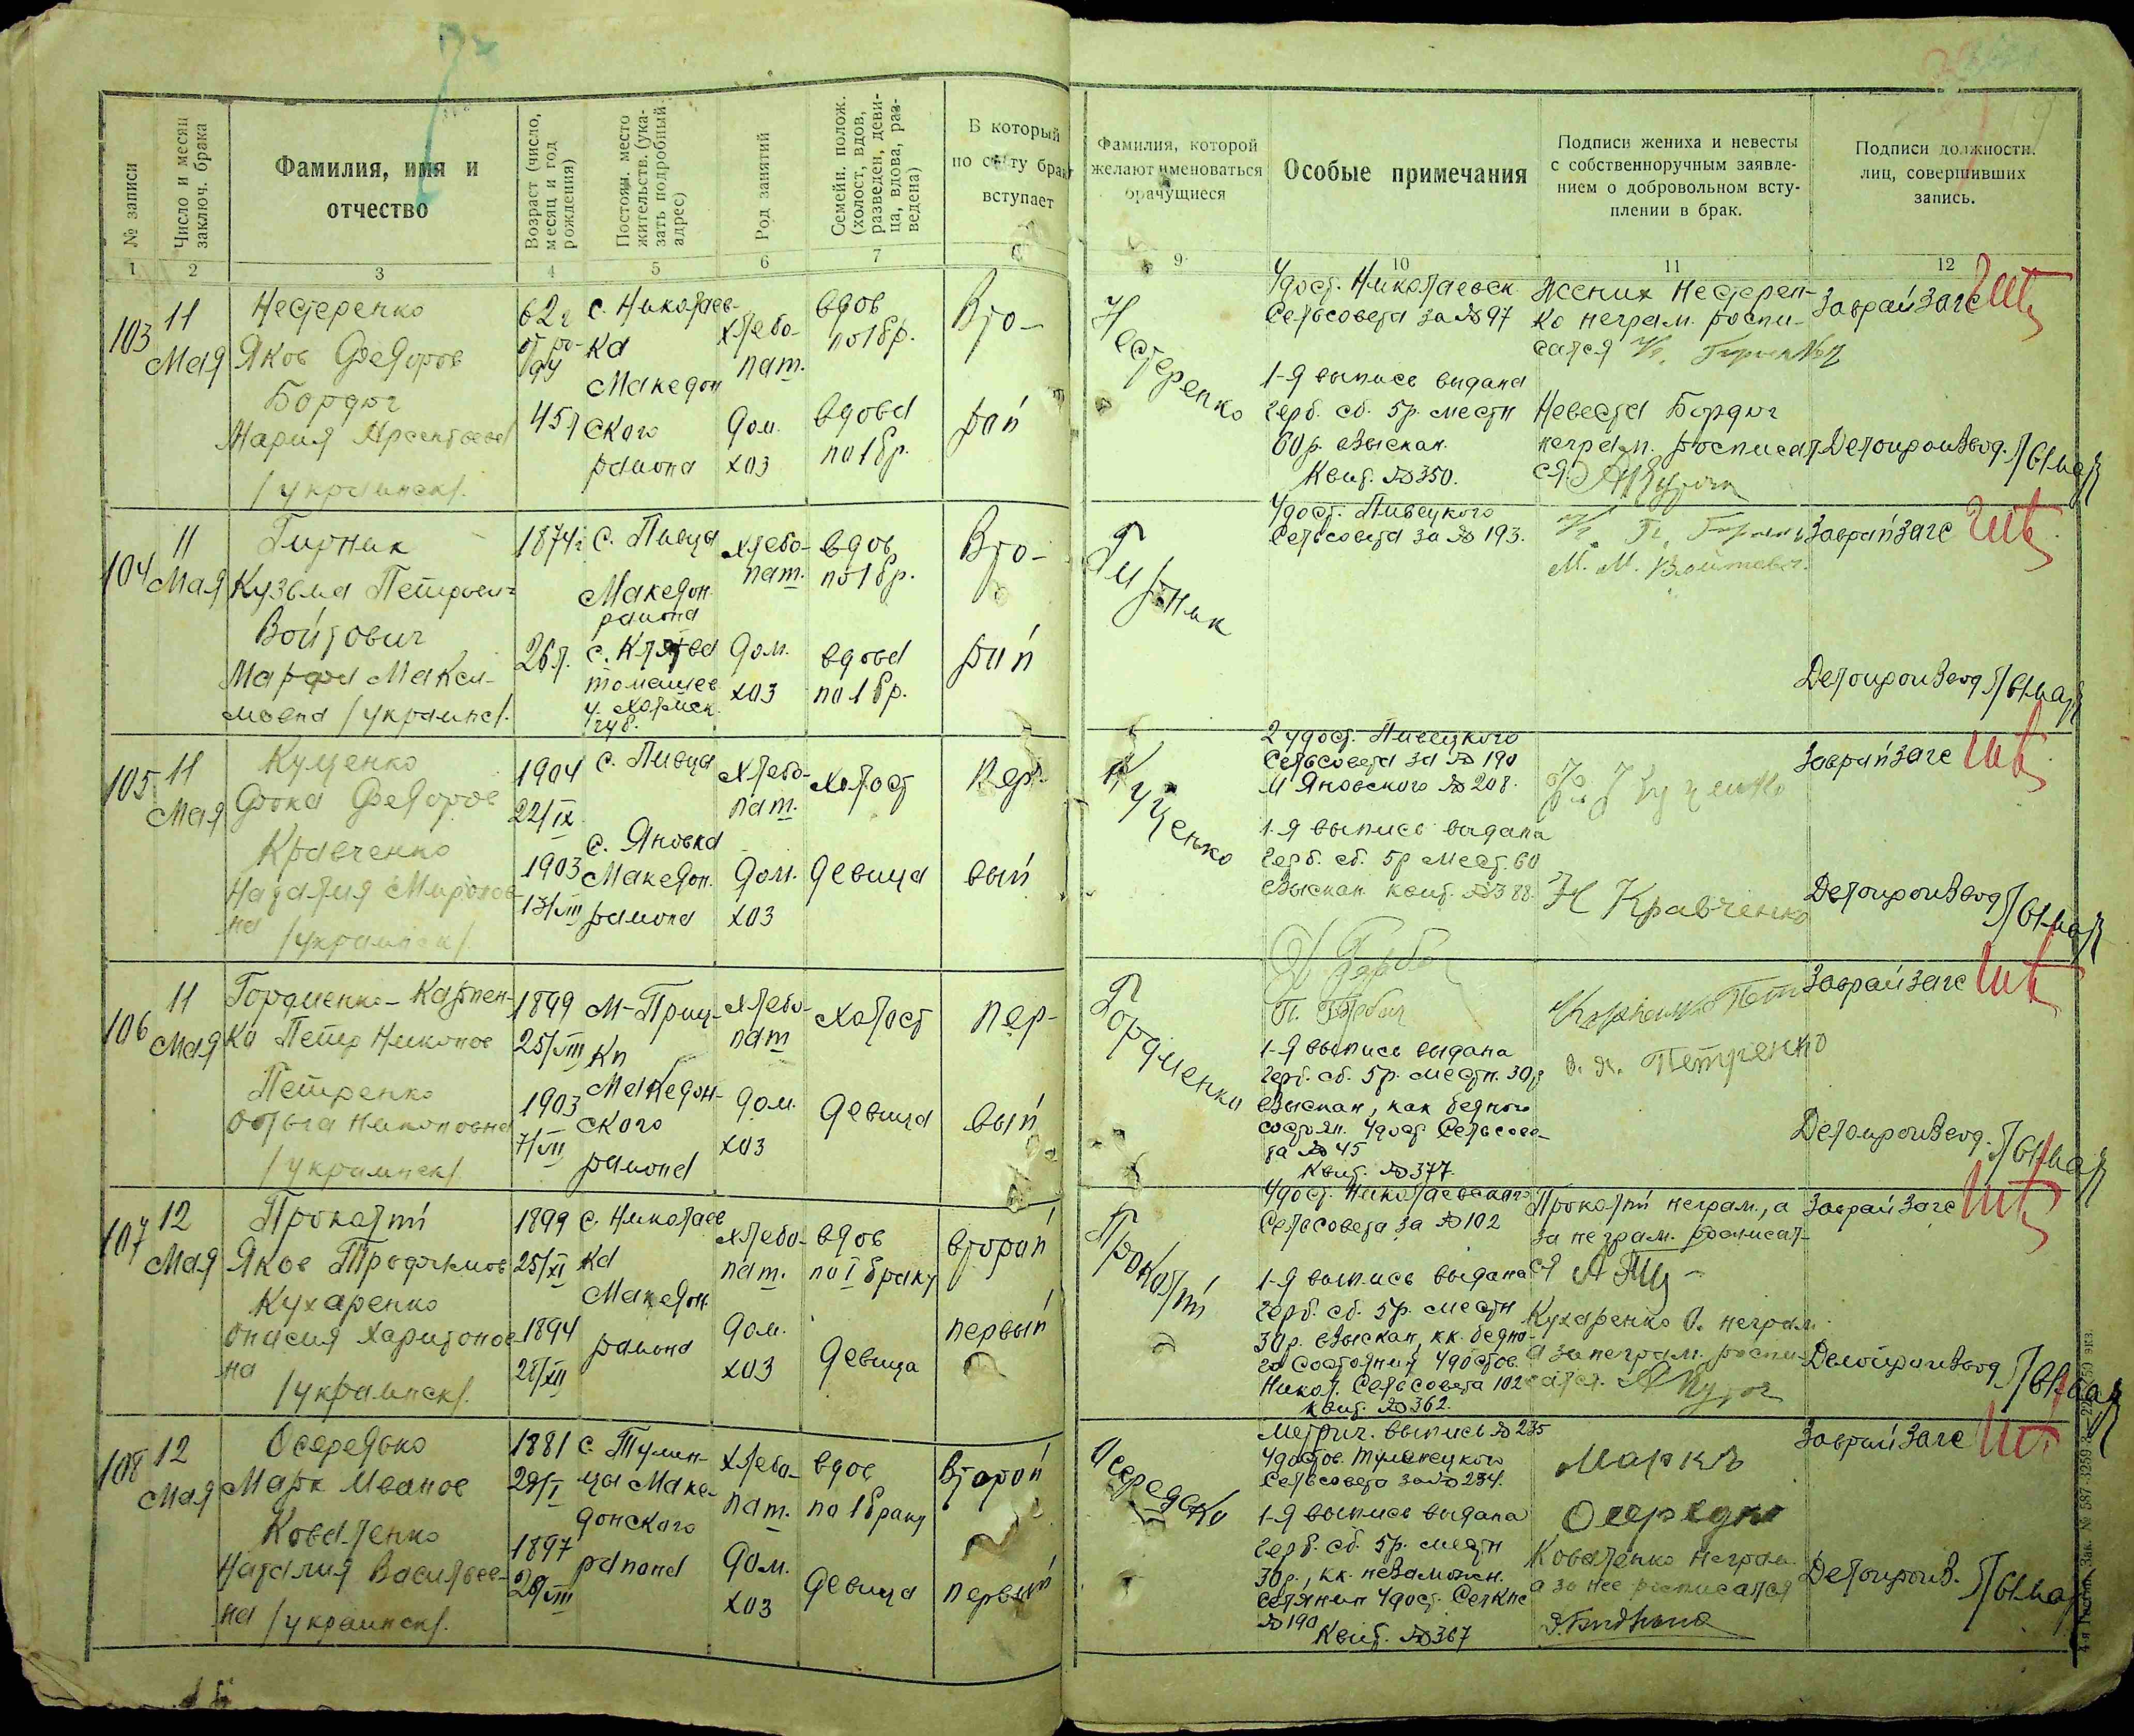 № записи
Число и месяц заключ. брака
Фамилия, имя и
отчество
Возраст (число, месяц и год рождения)
Постоян. место жительств. (указать подробный адрес)
Род занятий
Семейн. полож. (холост, вдов, разведен, девица, вдова, разведена)
В который
по счету брак
вступает
Фамилия, которой
желают именоваться
брачущиеся
Особые примечания
Подписи жениха и невесты
с собственноручным заявле-
нием о добровольном всту-
плении в брак.
Подписи должностн.
лиц, совершивших
запись.
1 2 3 4 5 6 7
9 10 11 12
103
11
Мая
Нестеренко
Яков Федоров
Бордюг
Мария Арсентьев
/украинск/.
62 г
45 л
с. Николаев-
ка
Македон
ского
района
хлебо-
паш.
дом.
хоз
вдов
по 1 бр.
вдова
по 1 бр.
Вто-
рой
Нестеренко
Удост. Николаевск
Сельсовета за № 97
1-я выпись выдана
герб. сб. 5р. местн
60р. взыскан.
Квит. № 350.
Жених Нестерен-
ко неграм. роспи-
сался
Невеста Бордюг
неграм. росписал
ся
Заврайзагс
Делопроизвод.
104
11
Мая
Гирник
Кузьма Петров
Войтович
Марфа Макси-
мовна /украинс/.
1874г
26 л.
с. Пивца
Македон.
района
с.
томашев
у. Холмск.
губ.
хлебо-
паш.
дом.
хоз
вдов
по 1 бр.
вдова
по 1 бр.
Вто-
рой
Гирник
Удост. Пивецкого
Сельсовета за № 193.
М. М. Войтович
Заврайзагс
Делопроизвод
105
11
Мая
Куценко
Фока Федоров
Кравченко
Наталия Миронов
на /украинск/.
1904
22/IX
1903
13/VIII
с. Пивца
с. Яновка
Македон.
района
хлебо-
паш.
дом.
хоз
холост
девица
Пер-
вый
Куценко
2 удост. Пивецкого
Сельсовета за № 190
и Яновского № 208.
1-я выпись выдана
герб. сб. 5р мест. 60
взыскан квит. № 388.
Н Кравченко
Заврайзагс
Делопроизвод
106
11
Мая
Гордиенко-Карпен-
ко Петр Никонов
Петренко
Ольга Никоновна
/украинск/.
1899
25/VIII
1903
7/VII
м-Приц-
ки
Македон-
ского
района
хлебо-
паш
дом.
хоз
холост
девица
пер-
вый
Гордиенко
1-я выпись выдана
герб. сб. 5р. местн. 30р
взыскан, как бедного
состоян. Удост Сельсове-
та № 45
Квит. № 377.
О. Н. Петренко
Заврайзагс
Делопроизвод.
107
12
Мая
Прокольий
Яков Трофимов
Кухаренко
Онисия Харитонов
на
/украинск/.
1899
25/XI
1894
с. Николаев
ка
Македон.
района
хлебо-
паш.
дом.
хоз
вдов
по I браку
девица
второй
первый
Удост. Николаевского
Сельсовета за № 102
1-я выпись выдана
герб. сб. 5р. местн
30р. взыскан, кк. бедно-
го состояния удостов.
Никол. Сельсовета 102
квит. № 362.
неграм., а
за неграм. росписал-
ся
Кухаренко О. неграм.
а за неграм. роспи-
сался.
Заврайзагс
Делопроизвод
108
12
Мая
Осередько
Марк Иванов
Коваленко
Наталия Васильев-
на /украинск/.
1881
1897
с. Тулин-
цы Маке-
донского
района
хлебо-
паш.
дом.
хоз
вдов
по 1 браку
девица
Второй
первый
Осередько
Метрич. выпись № 235
Удостов. Тулинецкого
Сельсовета за № 234.
1-я выпись выдана
герб. сб. 5р. местн
30р., кк. незаможн.
селянин удост.
№ 190
Квит. № 367
Маркъ
Осередко
Коваленко неграм.
а за нее росписался
Заврайзагс
Делопроизв.